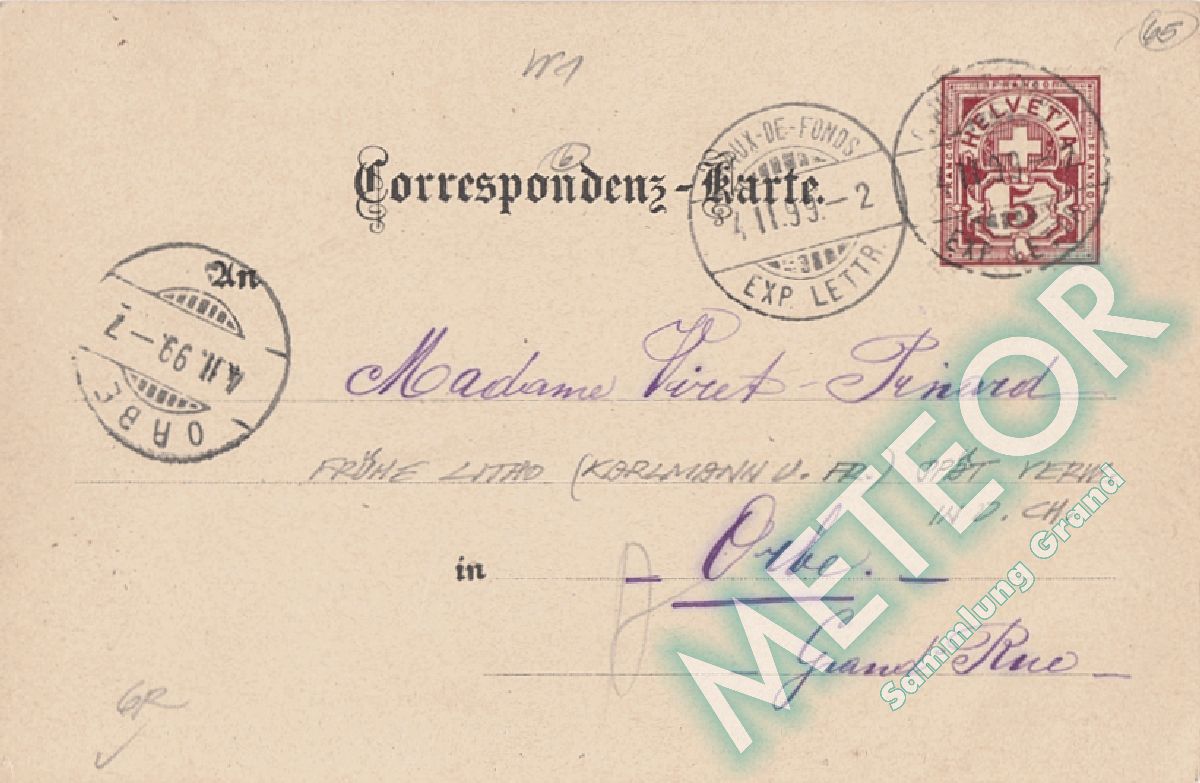 65
Correspondenz-Karte.
6
AUX-DE-FONDS
II.99.-2
EXP. LETTR.
FRANCO
HELVETIA
FRANCO
FRANCO
5
An
ORBE
4.II.99.-7
Madame Viret-Pinard
FRÜHE LITHO (KARLMANN U. FR.) SPÄT VERW.
IN D. CH.
in
Orbe.
Grand Rue
METEOR
Sammlung Grand
GR